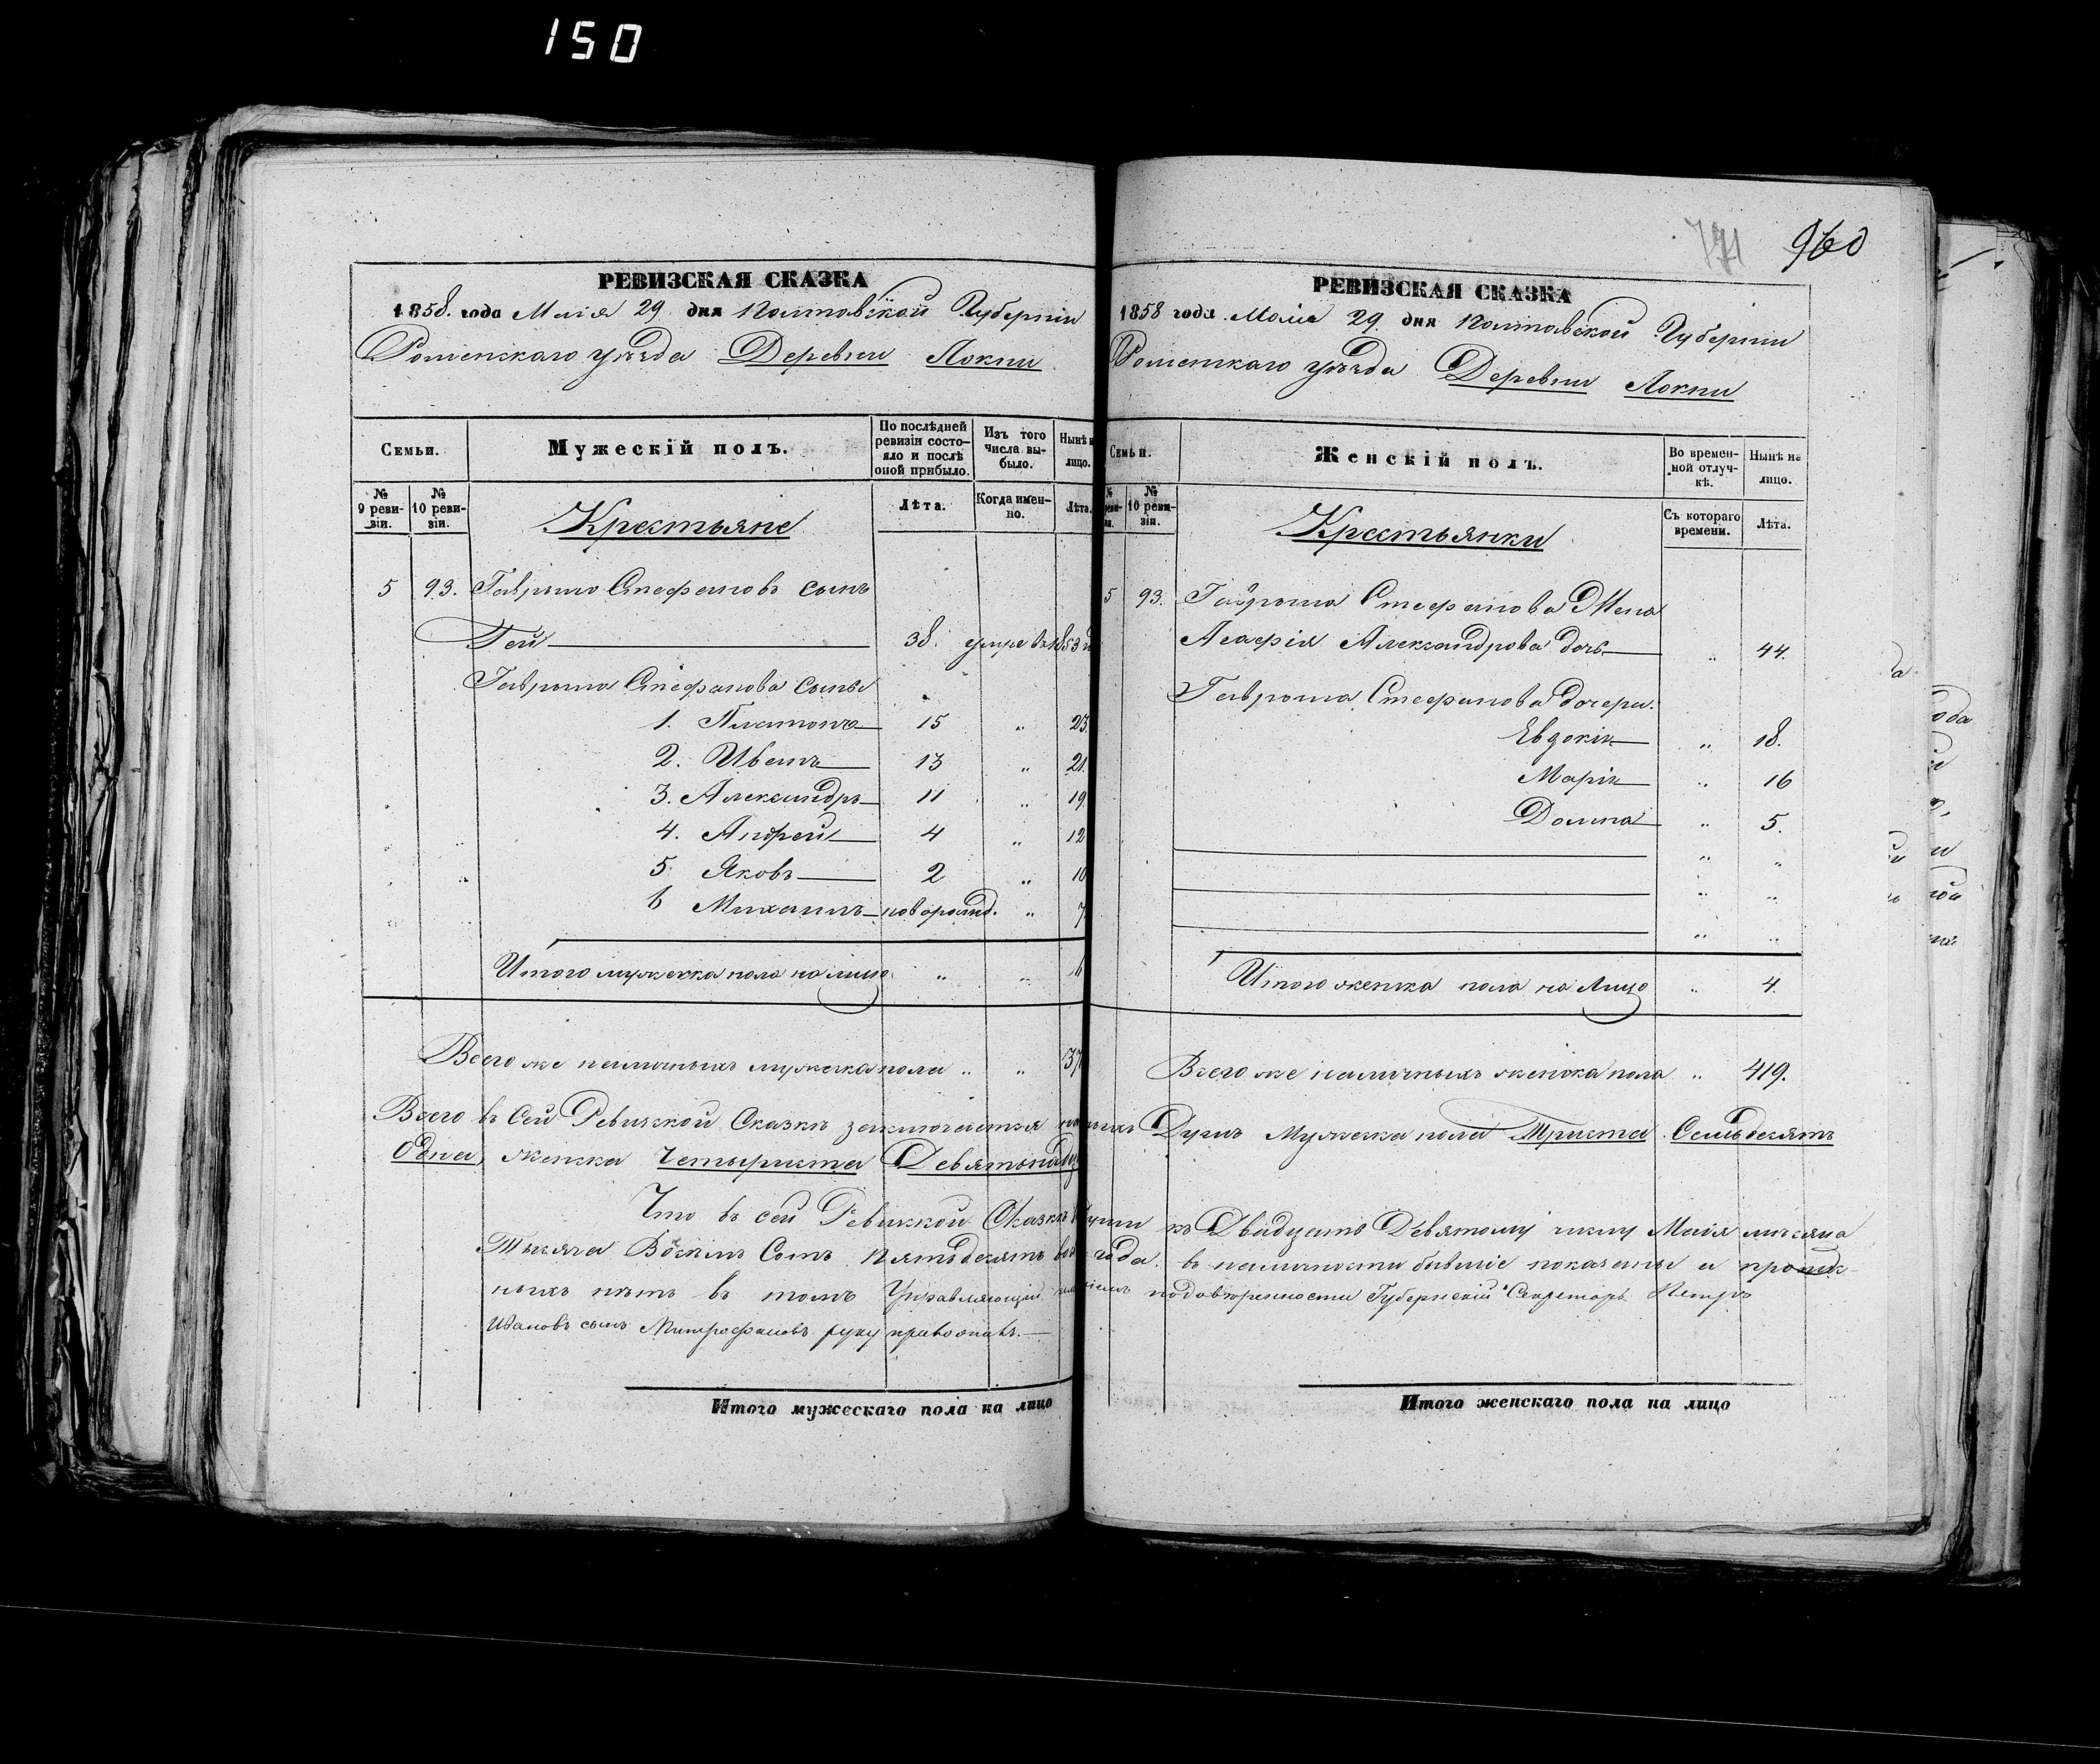 150
771 960
РЕВИЗСКАЯ СКАЗКА
1858. года Маія 29 дня Полтавской Губерніи
Роменскаго уѣзда Деревни Локни
Семьи.
Мужескій полъ.
По послѣдней ревизіи состояло и послѣ оной прибыло.
Изъ того числа выбыло.
Нынѣ
лицо.
№ 9 ревизіи.
№ 10 ревизіи.
Крестьяне
Лѣта.
Когда именно.
Лѣта.
5 93. Гаврыло Стефановъ сынъ
Гей 38. умре въ 1853
Гаврыла Стефанова сыны
1. Платонъ 15 „ 23.
2. Иванъ 13 „ 21.
3. Александръ 11 „ 19
4. Андрей 4 „ 12
5 Яковъ 2 „ 10
6 Михаилъ новорожд. „ 7
Итого мужеска пола на лицо „ „ 6
Всего же наличныхъ мужеска пола „ „ 37
РЕВИЗСКАЯ СКАЗКА
1858 года Маія 29 дня Полтавской Губерніи
Роменскаго уѣзда Деревни Локни
Семьи.
Женскій полъ.
Во временной отлучкѣ.
Нынѣ на лицо.
№ 10 ревизіи.
Крестьянки
Съ котораго времени.
Лѣта.
5 93. Гаврыла Стефанова Жена
Агафія Александрова дочь „ 44.
Гаврыла Стефанова дочери.
Евдокія „ 18.
Марія „ 16
Домна „ 5.
„ „
„ „
„ „
Итого женска пола на Лицо „ 4.
Всего же наличныхъ женска пола „ 419.
Всего въ сей Ревизской Сказкѣ заключается Душъ Мужеска пола Триста Семьдесятъ
Одна, женска Четыриста Девятнадц
Что въ сей Ревизской Сказкѣ къ Двадцать Девятому числу Маія мѣсяца
Тысяча Восемь Сотъ Пятьдесятъ года. въ наличности бывшіе показаны и
ныхъ нѣтъ въ томъ Управляющій подовѣренности Губернскій Секретарь Петръ
Ивановъ сынъ Митрофановъ руку приложилъ.
Итого мужескаго пола на лицо
Итого женскаго пола на лицо